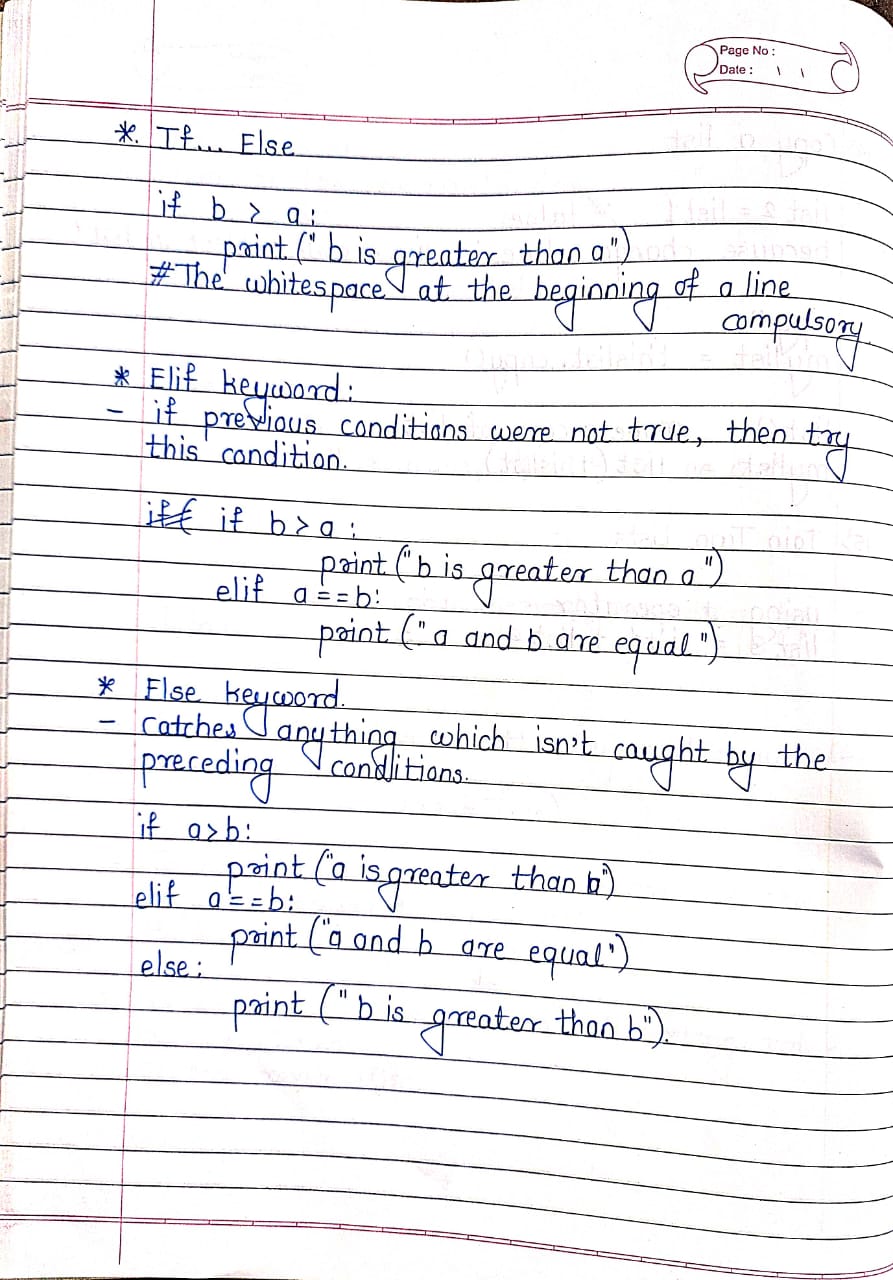 Page No :
Date :
*. If... Else
if b > a:
print (" b is greater than a")
# The whitespace at the beginning of a line
compulsory
* Elif keyword:
- if previous conditions were not true, then try
this condition.
if b > a :
print ("b is greater than a")
elif a == b:
print (" a and b are equal ")
* Else keyword.
- catches anything which isn't caught by the
preceding conditions.
if a > b:
print ("a is greater than b")
elif a == b:
print ("a and b are equal")
else:
print (" b is greater than b").